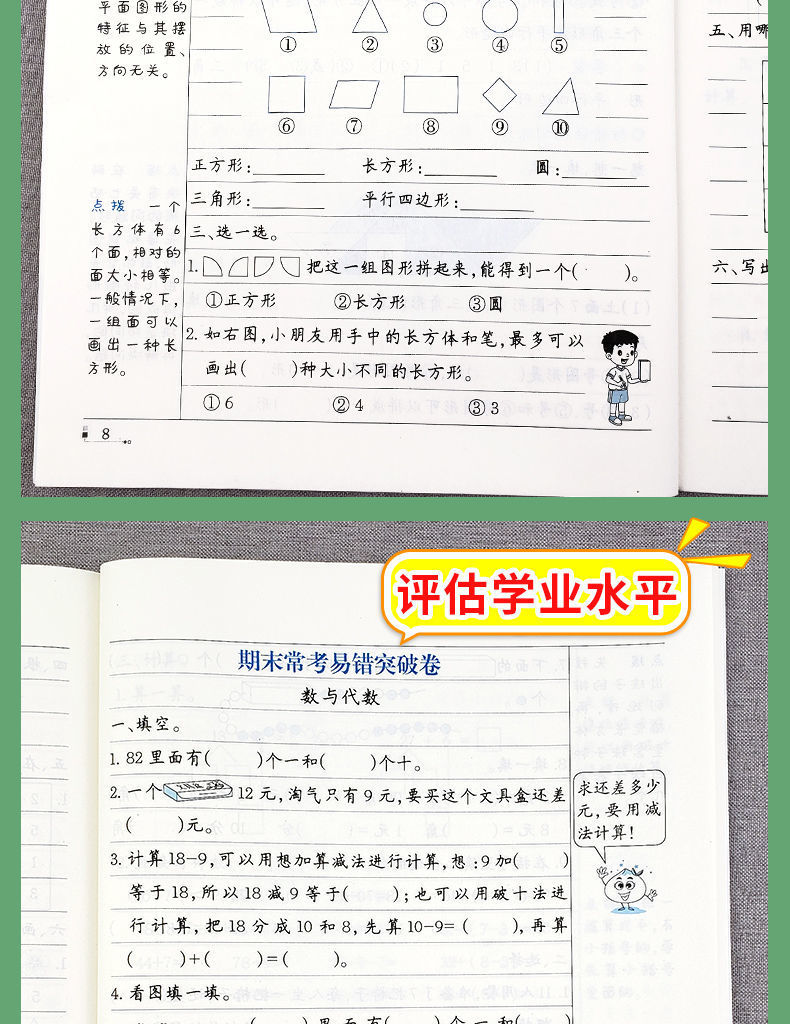 平面图形的
特征与其摆
放的位置、
方向无关。
① ② ③ ④ ⑤
⑥ ⑦ ⑧ ⑨ ⑩
正方形:________ 长方形:________ 圆:
三角形:________ 平行四边形:________
点拨 一个
长方体有6
个面,相对的
面大小相等。
一般情况下,
一组面可以
画出一种长
方形。
三、选一选。
1. 把这一组图形拼起来,能得到一个( )。
①正方形 ②长方形 ③圆
2. 如右图,小朋友用手中的长方体和笔,最多可以
画出( )种大小不同的长方形。
①6 ②4 ③3
8
五、用哪
六、写出
评估学业水平
期末常考易错突破卷
数与代数
一、填空。
1. 82里面有( )个一和( )个十。
2. 一个 12元,淘气只有9元,要买这个文具盒还差
( )元。
3. 计算18-9,可以用想加算减法进行计算,想:9加( )
等于18,所以18减9等于( );也可以用破十法进
行计算,把18分成10和8,先算10-9=( ),再算
( )+( )=( )。
4. 看图填一填。
( )里面有( )个一和(
求还差多少
元,要用减
法计算!